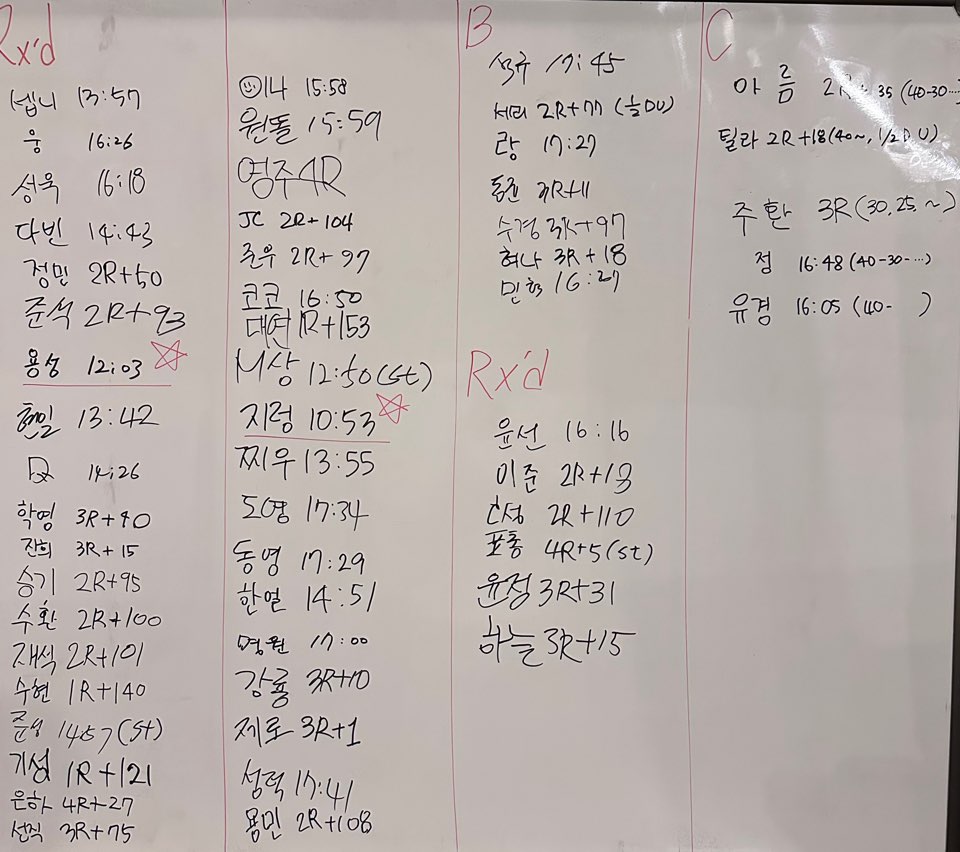 Rx'd
셉니 13:57
웅 16:26
성욱 16:18
다빈 14:43
정민 2R+50
준석 2R+93
용성 12:03
현일 13:42
14:26
학영 3R+90
잔희 3R+15
승기 2R+95
수환 2R+100
재석 2R+101
수현 1R+140
준성 14:57(st)
기성 1R+121
은하 4R+27
선직 3R+75
14 15:58
원똘 15:59
영주 4R
JC 2R+104
준우 2R+97
코코 16:50
대연 1R+153
M상 12:50(st)
지렁 10:53
찌우 13:55
도영 17:34
동영 17:29
한열 14:51
명원 17:00
강룡 3R+10
제로 3R+1
성덕 17:41
용민 2R+108
B
석규 17:45
세리 2R+77 (½DU)
랑 17:27
3R+11
수경 3R+97
허나 3R+18
민혁 16:27
Rx'd
윤선 16:16
이준 2R+13
C성 2R+110
4R+5(st)
윤정 3R+31
하늘 3R+15
C
아름 2R+35 (40-30-...)
틸라 2R+18(40~, 1/2D.U)
주환 3R(30.25.~)
정 16:48 (40-30-...)
유경 16:05 (40- )